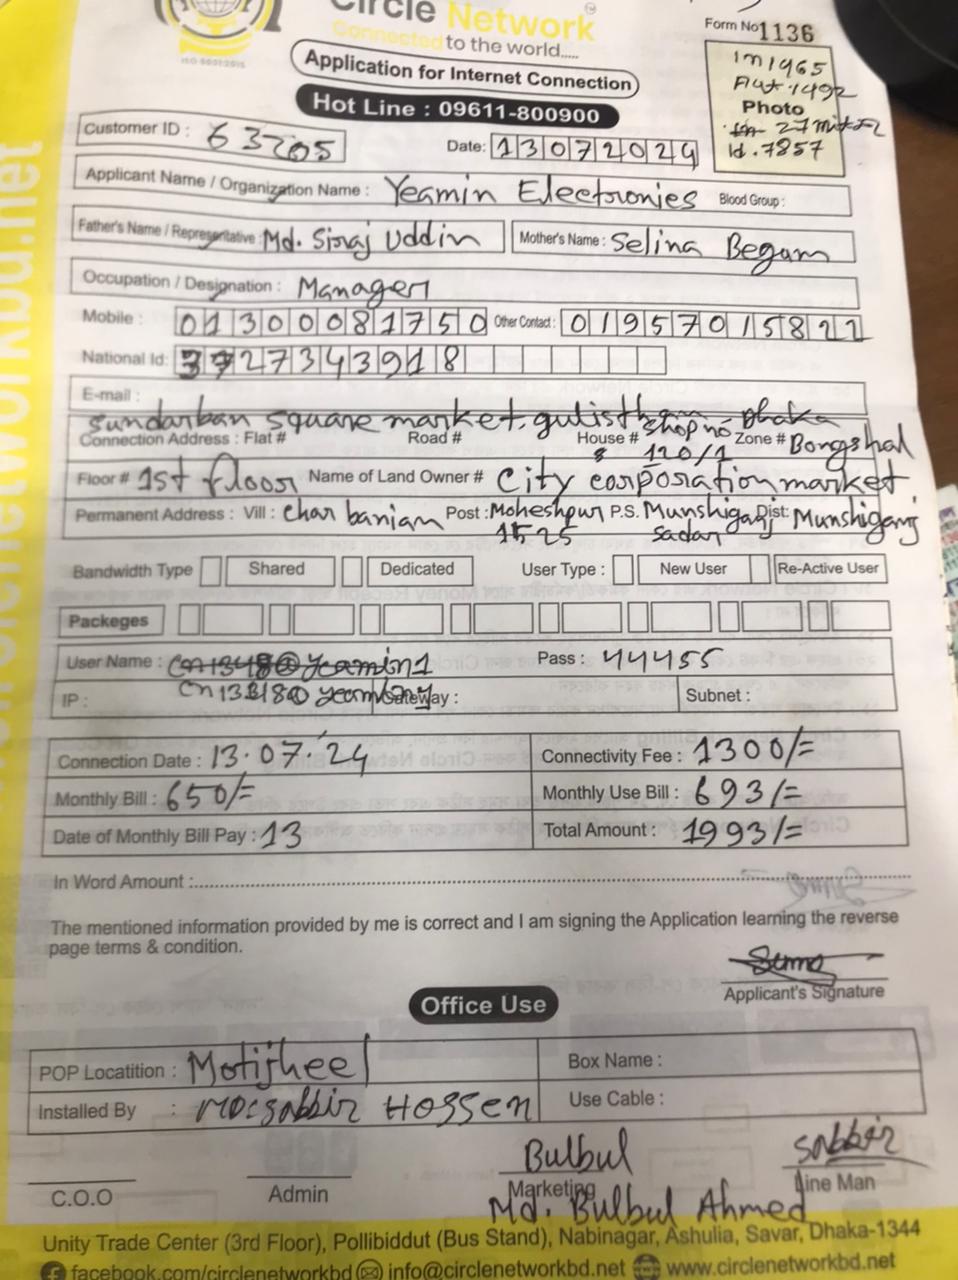 Circle Network
Connected to the world.....
Form No 1136
Application for Internet Connection
Hot Line : 09611-800900
in 1965
Photo
27
Id. 7857
ISO 9001:2015
Customer ID : 63205
Date: 13072024
Applicant Name / Organization Name : Yeamin Electronics Blood Group :
Father's Name / Representative : Md. Siraj Uddin Mother's Name : Selina Begum
Occupation / Designation : Manager
Mobile : 01300081750 Other Contact : 01957015822
National Id: 27343918
E-mail :
Sundarban square market. gulisthan Dhaka
Connection Address : Flat # Road # House # shop no 120/1 Zone # Bongshal
Floor # 1st floor Name of Land Owner # City corporation market
Permanent Address : Vill : Char banian Post : Moheshpur 1525 P.S. Munshiganj sadar Dist: Munshiganj
Bandwidth Type Shared Dedicated User Type : New User Re-Active User
Packeges
User Name : Pass : 44455
IP : Gateway : Subnet :
Connection Date : 13.07.24 Connectivity Fee : 1300/=
Monthly Bill : 650/= Monthly Use Bill : 693/=
Date of Monthly Bill Pay : 13 Total Amount : 1993/=
In Word Amount :
The mentioned information provided by me is correct and I am signing the Application learning the reverse
page terms & condition.
Applicant's Signature
Office Use
POP Locatition : Motijheel Box Name :
Installed By : Hossen Use Cable :
Bulbul sabbir
C.O.O Admin Marketing Line Man
Md. Bulbul Ahmed
Unity Trade Center (3rd Floor), Pollibiddut (Bus Stand), Nabinagar, Ashulia, Savar, Dhaka-1344
facebook.com/circlenetworkbd info@circlenetworkbd.net www.circlenetworkbd.net